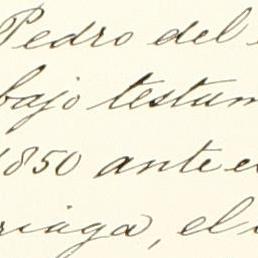 Pedro del
bajo testam
1850 ante e
riaga, el